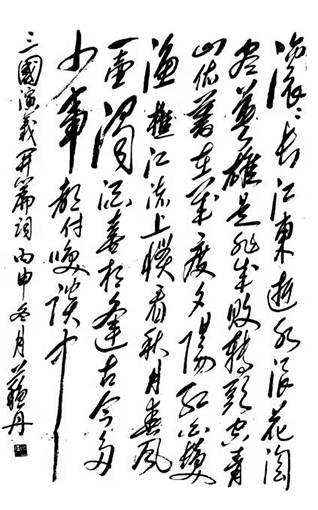 滚〻长江東逝水浪花淘
尽英雄是非成败转頭空青
山依舊在几度夕陽红白髮
渔樵江渚上惯看秋月春風
一壶濁酒喜相逢古今多
少事都付笑谈中
三國演義开篇詞丙申冬月蘇丹